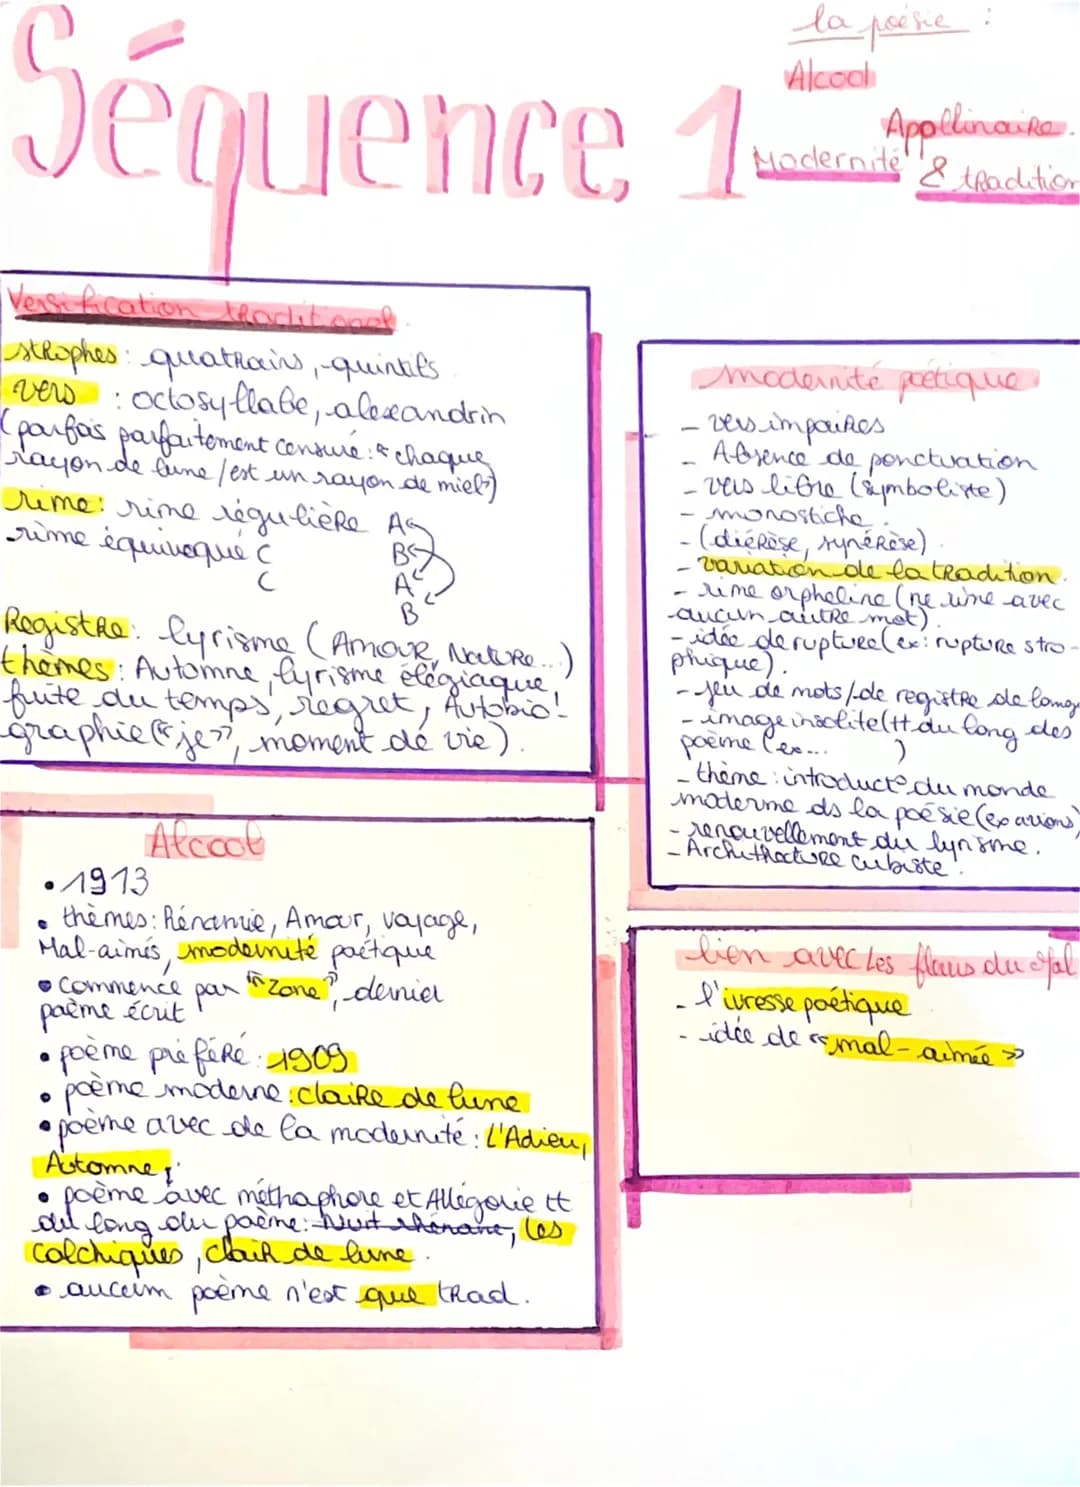 la poésie :
Séquence 1
Alcool
Appolinaire.
Modernité & tradition
Versification traditionnel.
strophes : quatrains, quintils
vers : octosyllabe, alexandrin
(parfois parfaitement censuré : " chaque
rayon de lune / est un rayon de miel")
rime : rime régulière A
rime équivoque C B
C A
B
Registre : lyrisme (Amour, Nature...)
thèmes : Automne, lyrisme élégiaque,
fuite du temps, regret, Autobio-
graphie ("je", moment de vie).
modernité poétique
- vers impaires
- Absence de ponctuation
- vers libre (symboliste)
- monostiche.
- (diérèse, synérèse)
- variation de la tradition.
- rime orpheline (ne rime avec
aucun autre mot).
- idée de rupture (ex: rupture stro-
phique).
- jeu de mots /de registre de lang
- image insolite (tt du long des
poème (ex... )
- thème : introduct° du monde
moderme ds la poésie (ex avions)
- renouvellement du lyrisme.
- Archithecture cubiste.
Alcool
• 1913
• thèmes : Rénanie, Amour, voyage,
Mal-aimés, modernité poétique
• Commence par "Zone", dernier
poème écrit
• poème préféré : 1909
• poème moderne : claire de lune
• poème avec de la modernité : L'Adieu,
Automne,
• poème avec méthaphore et Allégorie tt
du long du poème : Nuit rhénane, les
colchiques, clair de lune.
• aucum poème n'est que trad.
lien avec Les fleurs du Mal
- l'ivresse poétique
- idée de « mal-aimée »